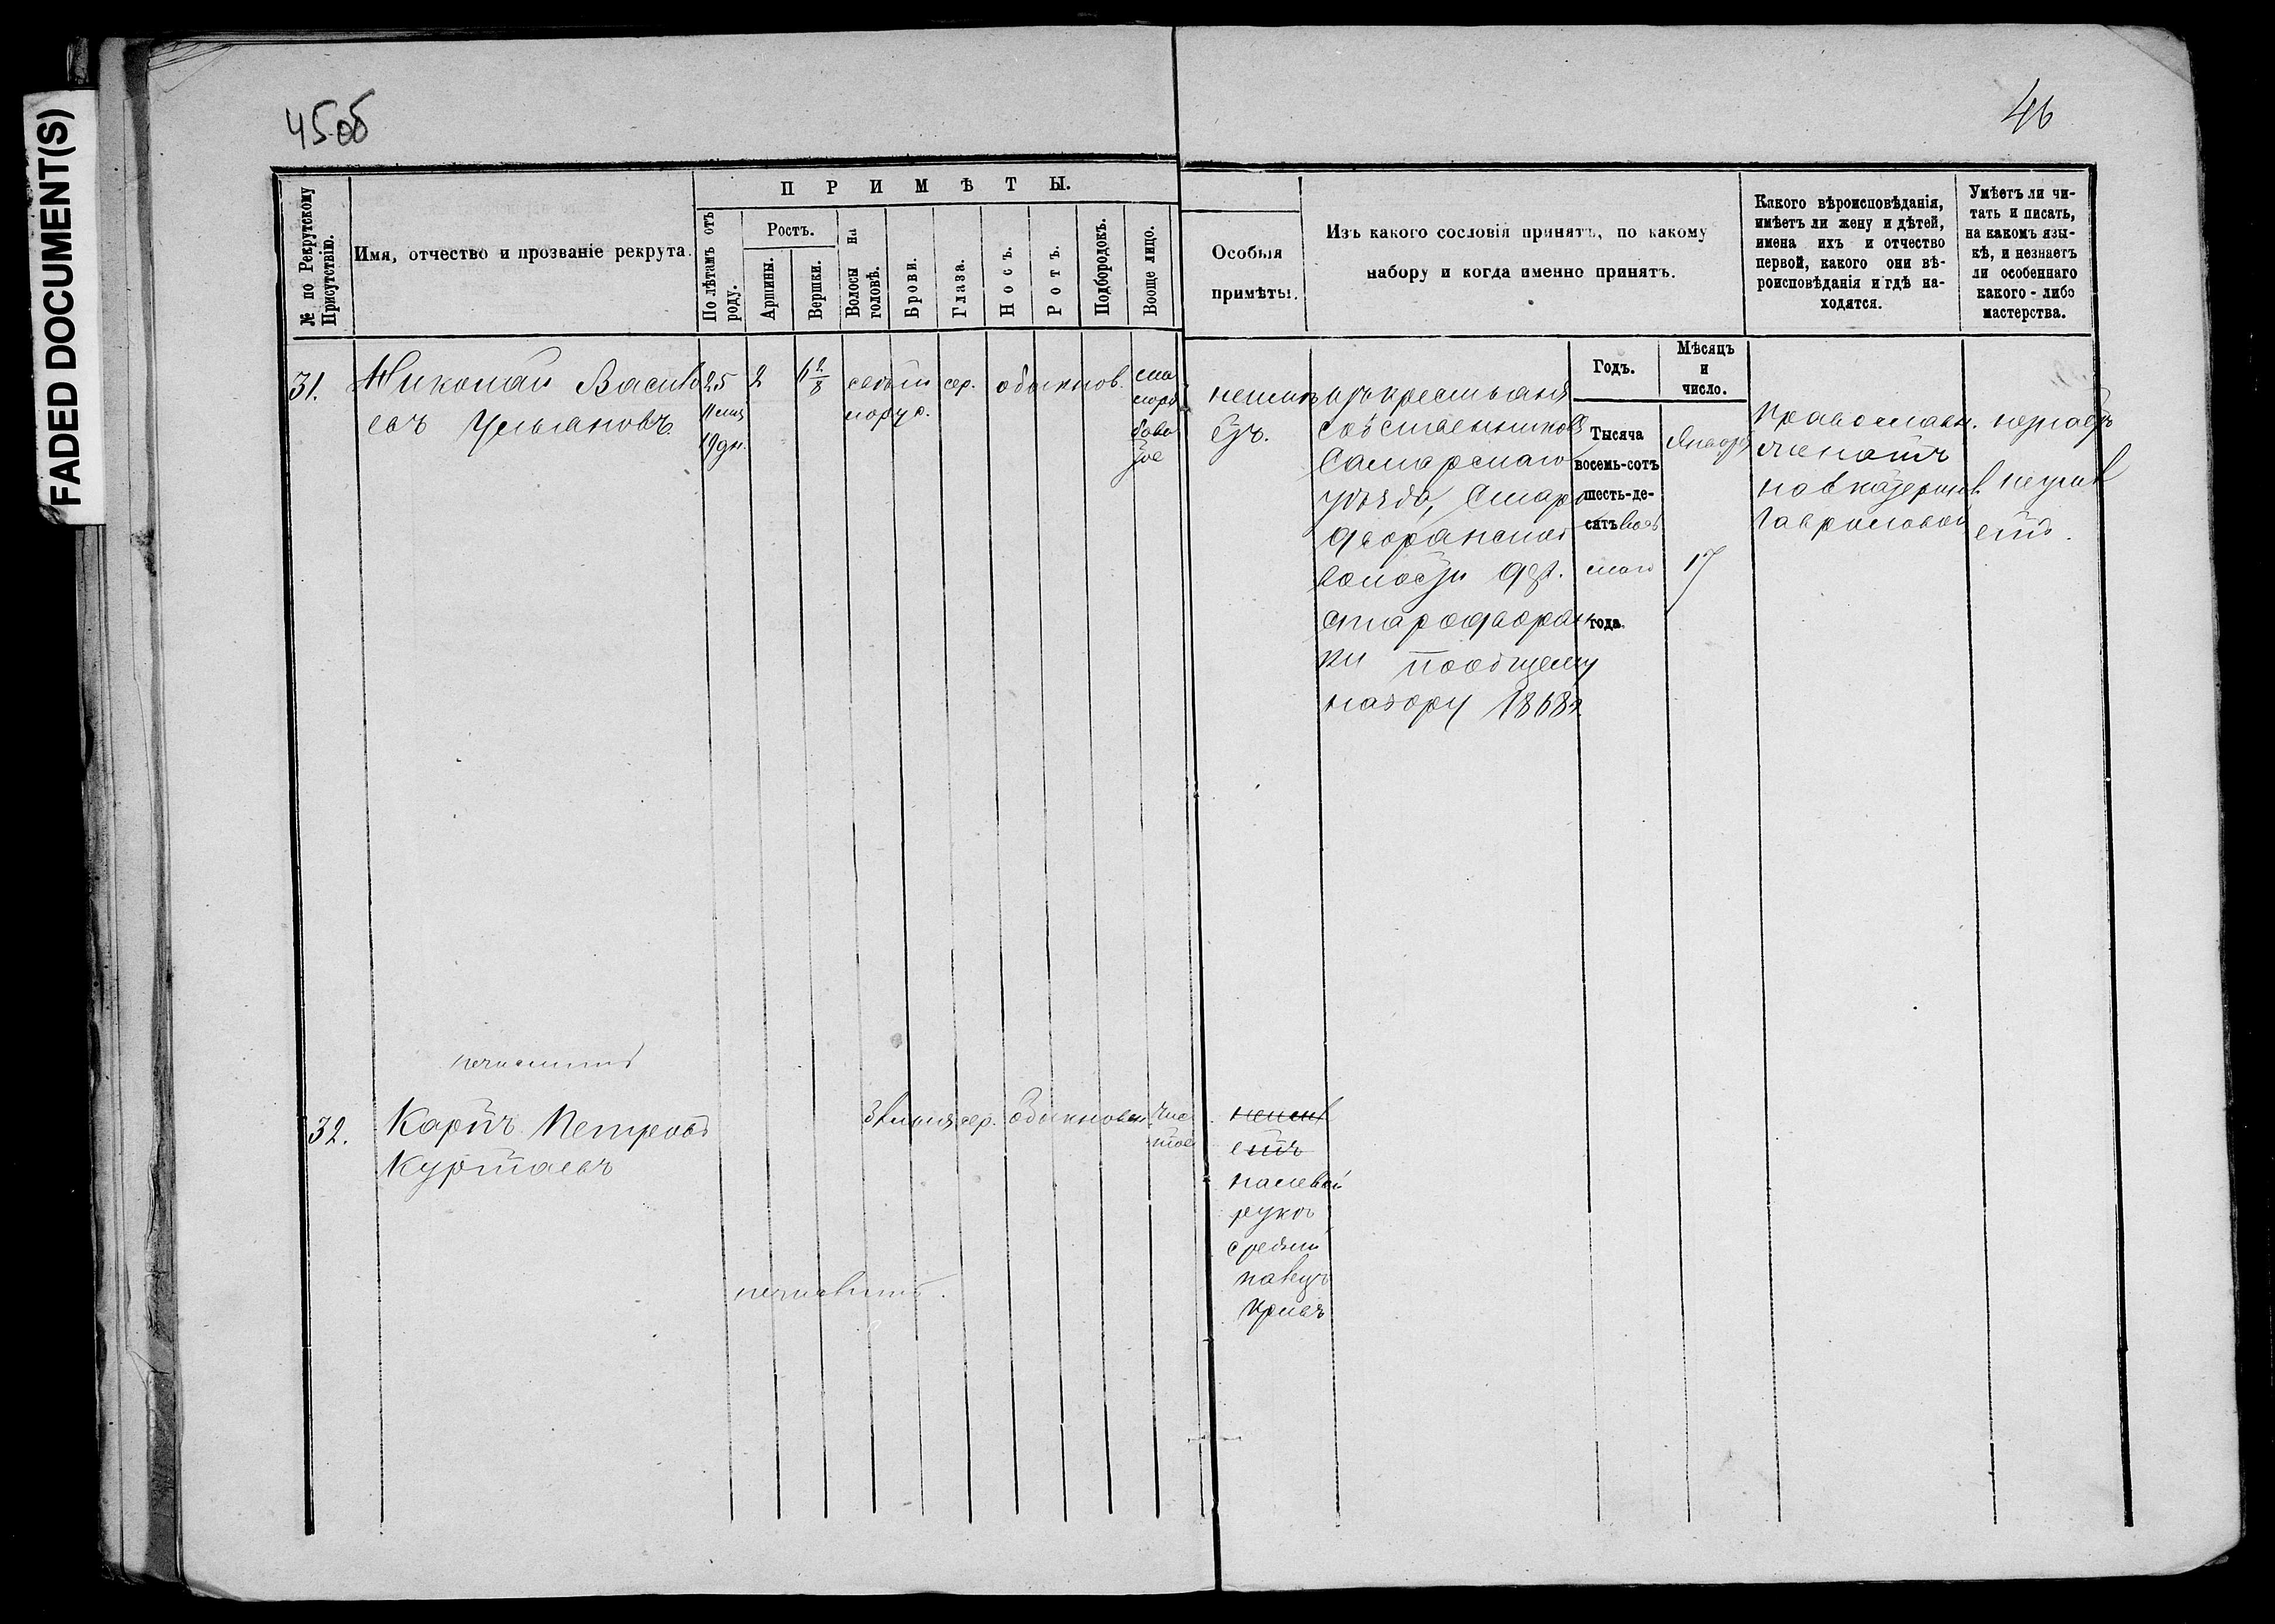 FADED DOCUMENT(S)
45об
46
№ по Рекрутскому Присутствію.
Имя, отчество и прозваніе рекрута.
ПРИМѢТЫ.
По лѣтамъ отъ роду.
Ростъ.
Аршины.
Вершки.
Волосы на головѣ.
Брови.
Глаза.
Носъ.
Ротъ.
Подбородокъ.
Вооще лицо.
Особыя
примѣты.
Изъ какого сословія принятъ, по какому
набору и когда именно принятъ.
Какого вѣроисповѣданія,
имѣетъ ли жену и дѣтей,
имена ихъ и отчество
первой, какого они вѣ-
роисповѣданія и гдѣ на-
ходятся.
Умѣетъ ли чи-
тать и писать,
на какомъ язы-
кѣ, и незнаетъ
ли особеннаго
какого-либо
мастерства.
Годъ.
Мѣсяцъ
и
число.
31.
Николай Василь
евъ Ульяновъ
25
11 мц
19 дн.
2
6 2/8
свѣтло
рус.
сер.
обыкнов.
неимѣ
етъ.
изъ крестьянъ
собственниковъ
Самарскаго
уѣзда, Старо
дворянской
волости дер.
Стародворян
ки пообщему
набору 1868 г.
Тысяча
восемь-сотъ
шесть-де-
сятъ вось
маго
года.
Января
17
Православн.
женатъ
Гавриловой
незнаетъ
неумѣ
етъ.
32.
Карпъ Петровъ
Куртаевъ
сер.
Обыкновен
чис
тое
неимѣ
етъ
налевой
рукѣ
средній
палецъ
кривъ